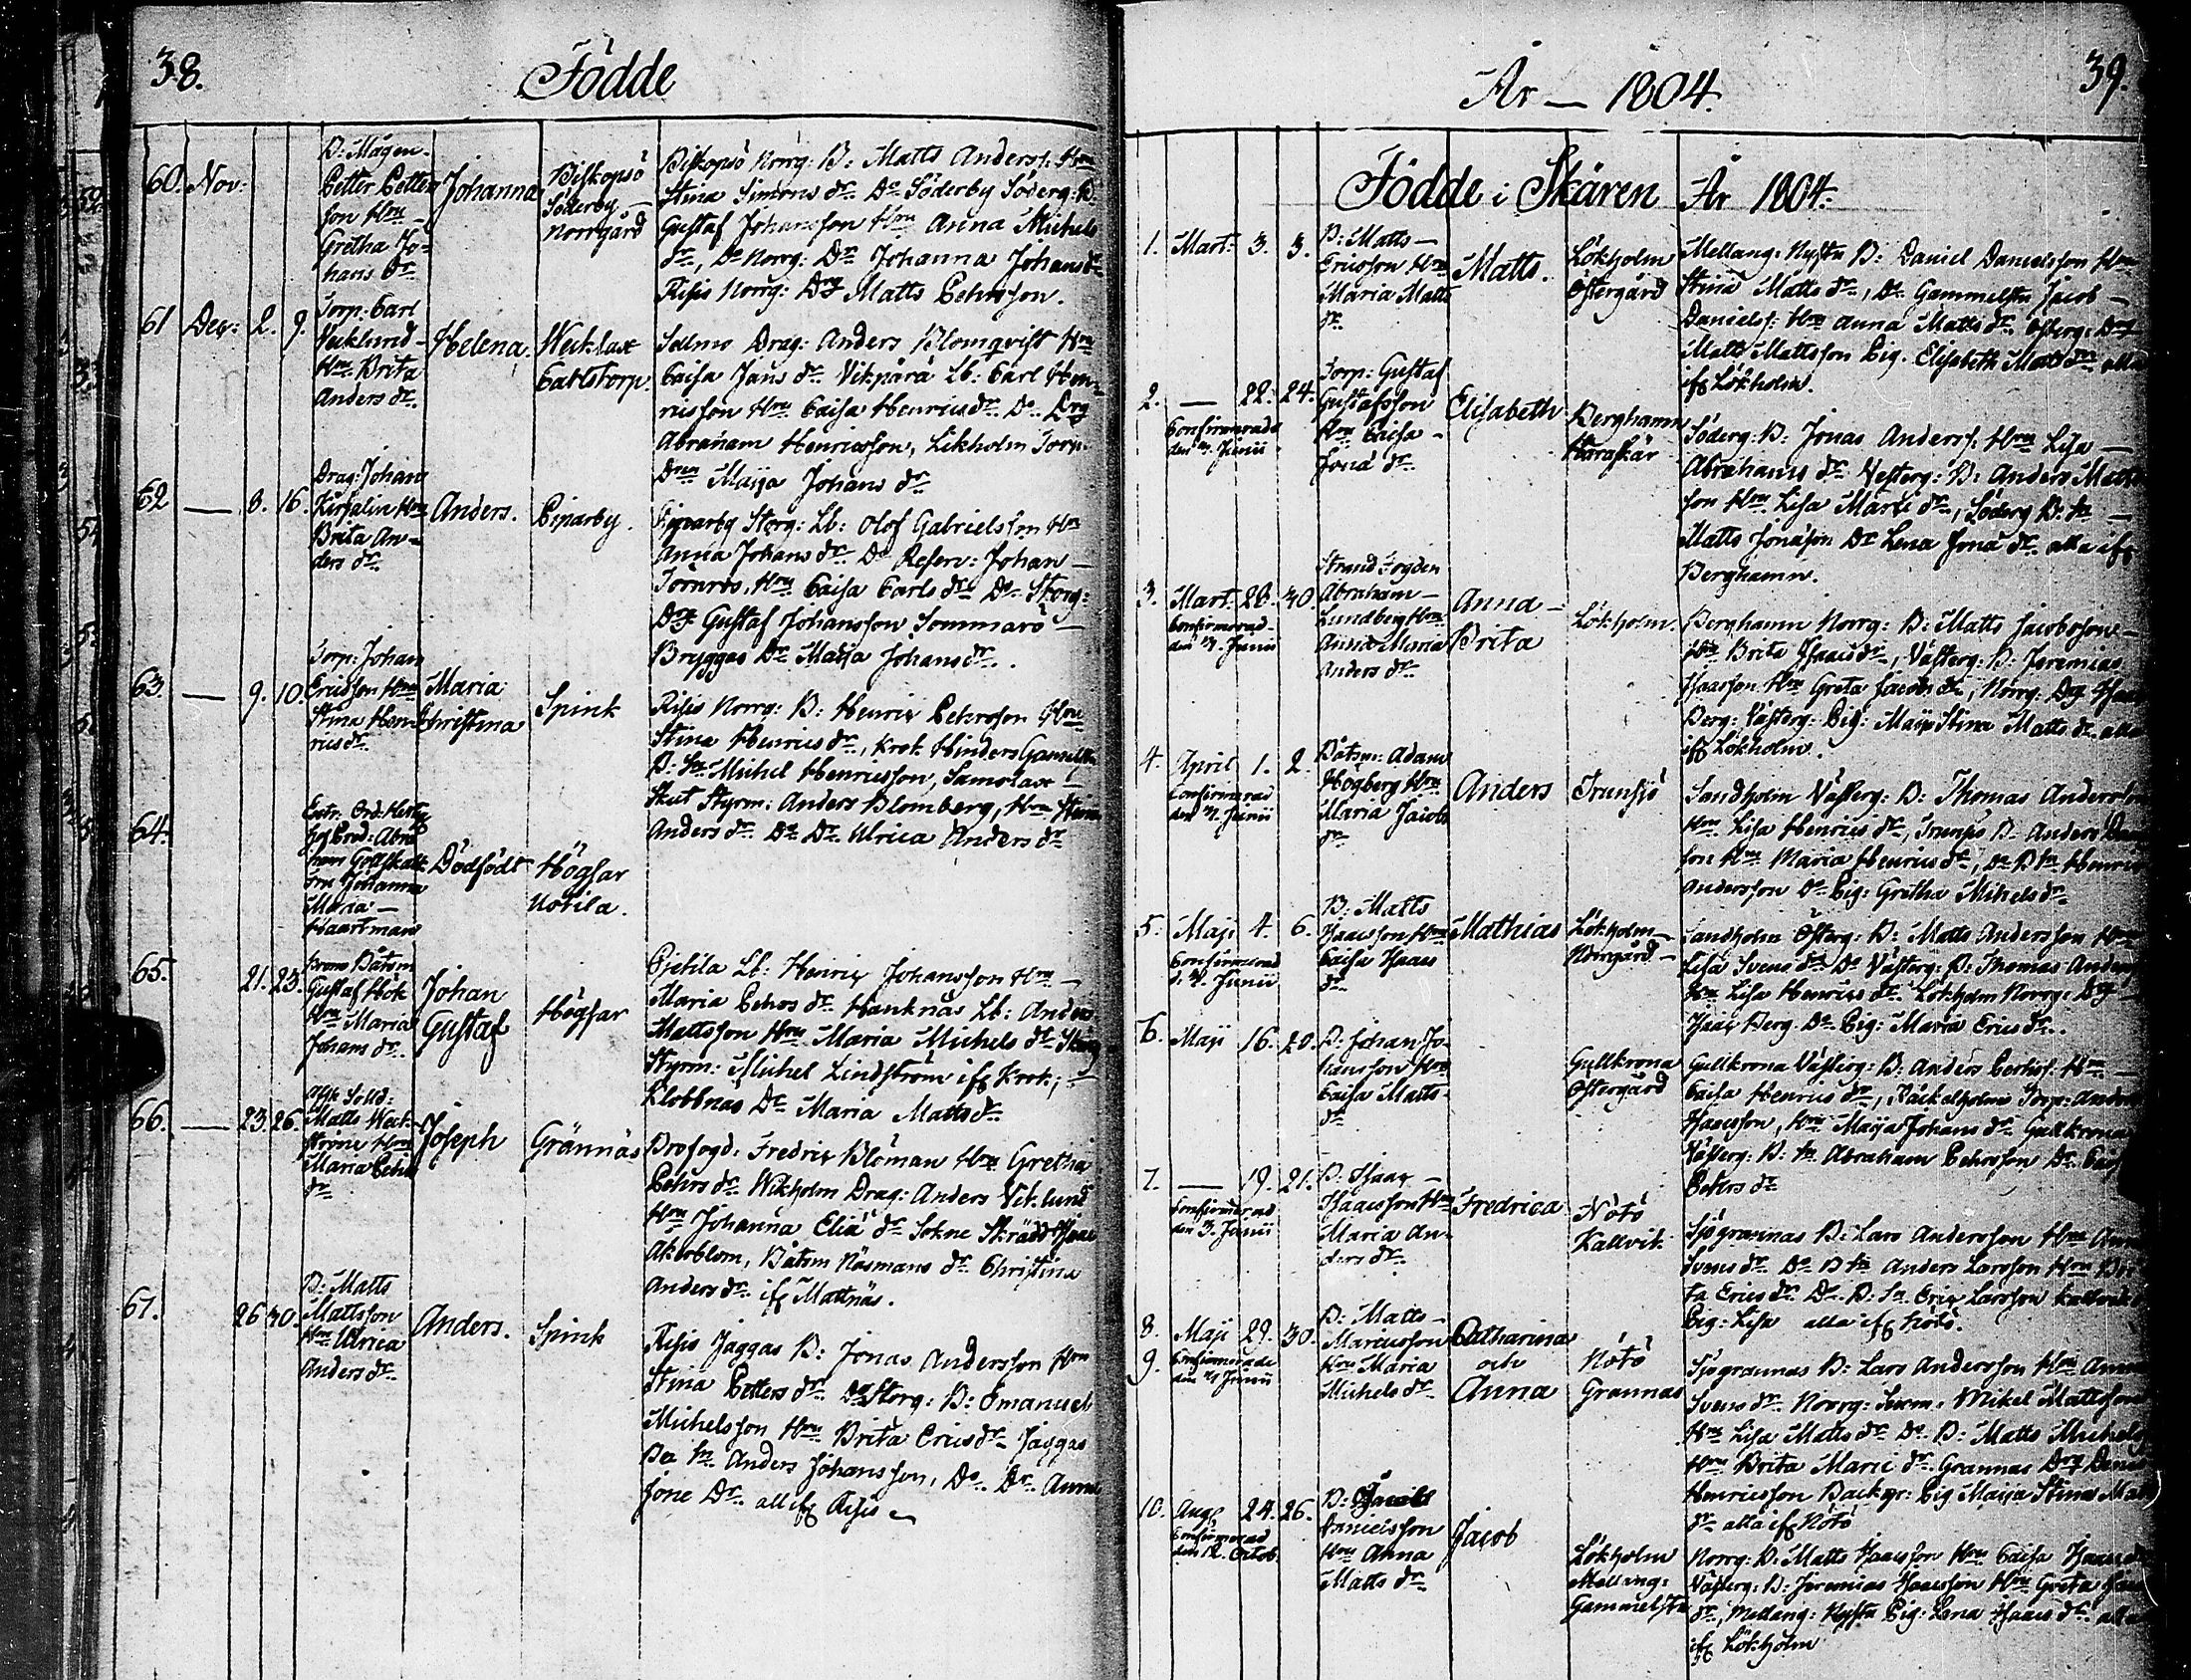 38.
Födde
60. Nov:
B: Mågen
Petter Petters
son Hru
Gretha Jo-
hans dr.
Johanna
Biskopsö
Söderby
Norrgård
Biskopsö Norrg: B: Matts Anderss: Hru
Stina Simons dr. Do Söderby Söderg: B:
Gustaf Johansson Hru Anna Michels
dr., Do Norrg: Dr Johanna Johans dr
Risis Norrg: Drg Matts Pehrsson.
61 Dec: 2. 9.
Torp: Carl
Hru Brita
Anders dr.
Helena.
Wecklax
Carlstorp.
Salmo Drag: Anders Blomqvist Hru
Caisa Jans dr. Vikpårä Lb: Carl Hen-
ricsson Hru Caisa Henrics dr. Do. Drg
Abraham Henricsson, Likholm Torp:
Dren Maija Johans dr
62 — 8. 16.
Drag: Johan
Hru
Brita An-
ders dr.
Anders.
Piparby.
Piparby Storg: Lb: Olof Gabrielsson Hru
Anna Johans dr. Do Reserv: Johan
Törnros, Hru Caisa Carls dr Do Storg:
Drg Gustaf Johansson Sommarö
Brygges Dr Maija Johans dr.
63. — 9. 10.
Torp: Johan
Ericsson Hru
Stina Hen-
rics dr.
Maria
Christina
Spink
Risis Norrg: B: Henric Pehrsson Hru
Stina Henrics dr., Krok Hinders Gammelst
B: Sn Michel Henricsson, Samslax
Skut Styrm: Anders Blomberg, Hru Stina
Anders dr Do Dr Ulrica Anders dr
64.
Extr. Ord.
Abra
ham Gottskalk
Johanna
Maria
Haartman
Dödfödt
Högsar
Uotila.
65. 21. 23.
Båtsm
Gustaf Hök
Hru Maria
Johans dr.
Johan
Gustaf
Högsar
Pjetila Lb: Henric Johansson Hru
Maria Pehrs dr Hanknäs Lb: Anders
Mattsson Hru Maria Michels dr
Styrm: Michel Lindström ifr Krok;
Klobbnas Dr Maria Matts dr
66. — 23. 26.
Sold:
Matts Weck-
ström Hru
Maria Pehrs
dr
Joseph
Grännäs
Profogd: Fredric Blöman Hru Gretha
Pehrs dr. Wikholm Drag: Anders Veklund
Hru Johanna Eliæ dr Sokne Skrädd Isaac
Åkerblom, Båtsm Näsmans dr Christina
Anders dr. ifr Mattnäs.
67. 26 30.
B: Matts
Mattsson
Hru Ulrica
Anders dr.
Anders.
Spink
Risis Jaggas B: Jonas Andersson Hru
Stina Petters dr. Do Storg: B: Emanuel
Michelsson Hru Brita Erics dr. Jaggas
Be Sn Anders Johansson, Do. Dr. Anna
Jone Dr. all ifr Risis
År — 1804.
39.
Födde i Skären År 1804:
1. Mart: 3. 3.
B: Matts
Ericsson Hru
Maria Matts
dr.
Matts.
Lökholm
Östergård
Mellang: Nystu B: Daniel Danielsson Hru
Stina Matts dr., Do Gammelstu Jacob
Daniels: Hru Anna Matts dr. Österg: Drg
Matts Mattsson Pig. Elisabeth Matts dr alla
ifr Lökholm.
2. — 22. 24.
Confirmerade
den Junii
Torp: Gustaf
Gustafsson
Hru Caisa
Jona dr.
Elisabeth
Berghamn
Haraskär
Söderg: B: Jonas Anderss: Hru Lisa
Abrahams dr Vesterg: B: Anders Matts
son Hru Lisa Marie dr., Söderg B: Sn
Matts Jonasson Dr Lena Jona dr. alla ifr
Berghamn.
3. Mart. 28. 30.
Confirmerad
den Junii
Strand Fogden
Abraham
Lundberg Hru
Anna Maria
Anders dr
Anna
Brita
Lökholm.
Berghamn Norrg: B: Matts Jacobsson
Hru Brita Isaacs dr, Västerg: B: Jeremias
Isaacsson Hru Greta Jacobs dr, Norrg: Drg Isaac
Berg: Västerg: Pig: Maija Stina Matts dr. alla
ifr Lökholm.
4. April 1. 2.
Confirmerad
den Junii
Båtsm: Adam
Högberg Hru
Maria Jacobs
dr
Anders
Trunsjö
Sandholm Västerg: B: Thomas Andersson
Hru Lisa Henrics dr, Trunsjö B: Anders
son Hru Maria Henrics dr, Do B: Sn Henric
Andersson Do Pig: Gretha Mihels dr
5. Maji 4. 6.
Confirmerad
d. Junii
B: Matts
Isaacsson Hru
Caisa Isaacs
dr
Mathias
Lökholm
Norrgård
Sandholm Österg: B: Matts Andersson Hru
Lisa Svens dr Do Västerg: B: Thomas Anderss
Hru Lisa Henrics dr. Lökholm Norrg: Drg
Isaac Berg Do Pig: Maria Erics dr.
6. Maji 16. 20.
B: Johan Jo-
hansson Hru
Caisa Matts-
dr
Gullkrona
Östergård
Gullkrona Västerg: B: Anders Pehrss: Hru
Caisa Henrics dr, Päckelholm Torp: Anders
Isaacsson, Hru Maija Johans dr Gullkrona
Västerg: B: Sn Abraham Pehrsson Dr Caisa
Pehrs dr
7. — 19. 21.
Confirmerad
den Junii
B: Isaac
Isaacsson Hru
Maria An-
ders dr.
Fredrica
Nötö
Kallvik
Sjögrannas B: Lars Andersson Hru Anna
Svens dr Do B Sn Anders Larsson Hru Bri
ta Erics dr Do. B: Sn. Eric Larsson Kallvik
Pig: Lisa alla ifr Nötö.
8. Maji 29. 30.
9. Confirmerade
den Junii
B: Matts
Marcusson
Hru Maria
Michels dr.
Catharina
och
Anna
Nötö
Grannas
Sjögrannas B: Lars Andersson Hru Anna
Svens dr. Norrg: Mikel Mattsson
Hru Lisa Matts dr Do. B: Matts Michels
Hru Brita Marie dr. Grannas Drg
Henricsson Backgr: Pig Maija Stina Mat
dr alla ifr Nötö
10. Aug: 24. 26.
Confirmerad
den 12. Octob.
B: Jacob
Danielsson
Hru Anna
Matts dr.
Jacob
Lökholm
Mellang:
Gammelstu
Norrg: B: Matts Isaacsson Hru Caisa Isaacs dr
Västerg: B: Jeremias Isaacsson Hru Greta
dr, Mellang: Nysta Pig: Lena Isaacs dr. alla
ifr Lökholm